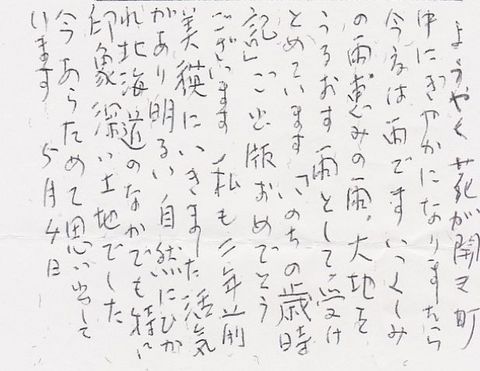 ようやく花が開き町
中にぎやかになりましたら
今度は雨ですいつくしみ
の雨恵みの雨。大地を
うるおす雨として受け
とめています「いのちの歳時
記」ご出版おめでとう
ございます 私も二年前
美瑛にいきました活気
があり明るい自然にひか
れ北海道のなかでも特に
印象深い土地でした
今あらためて思い出して
います 5月4日